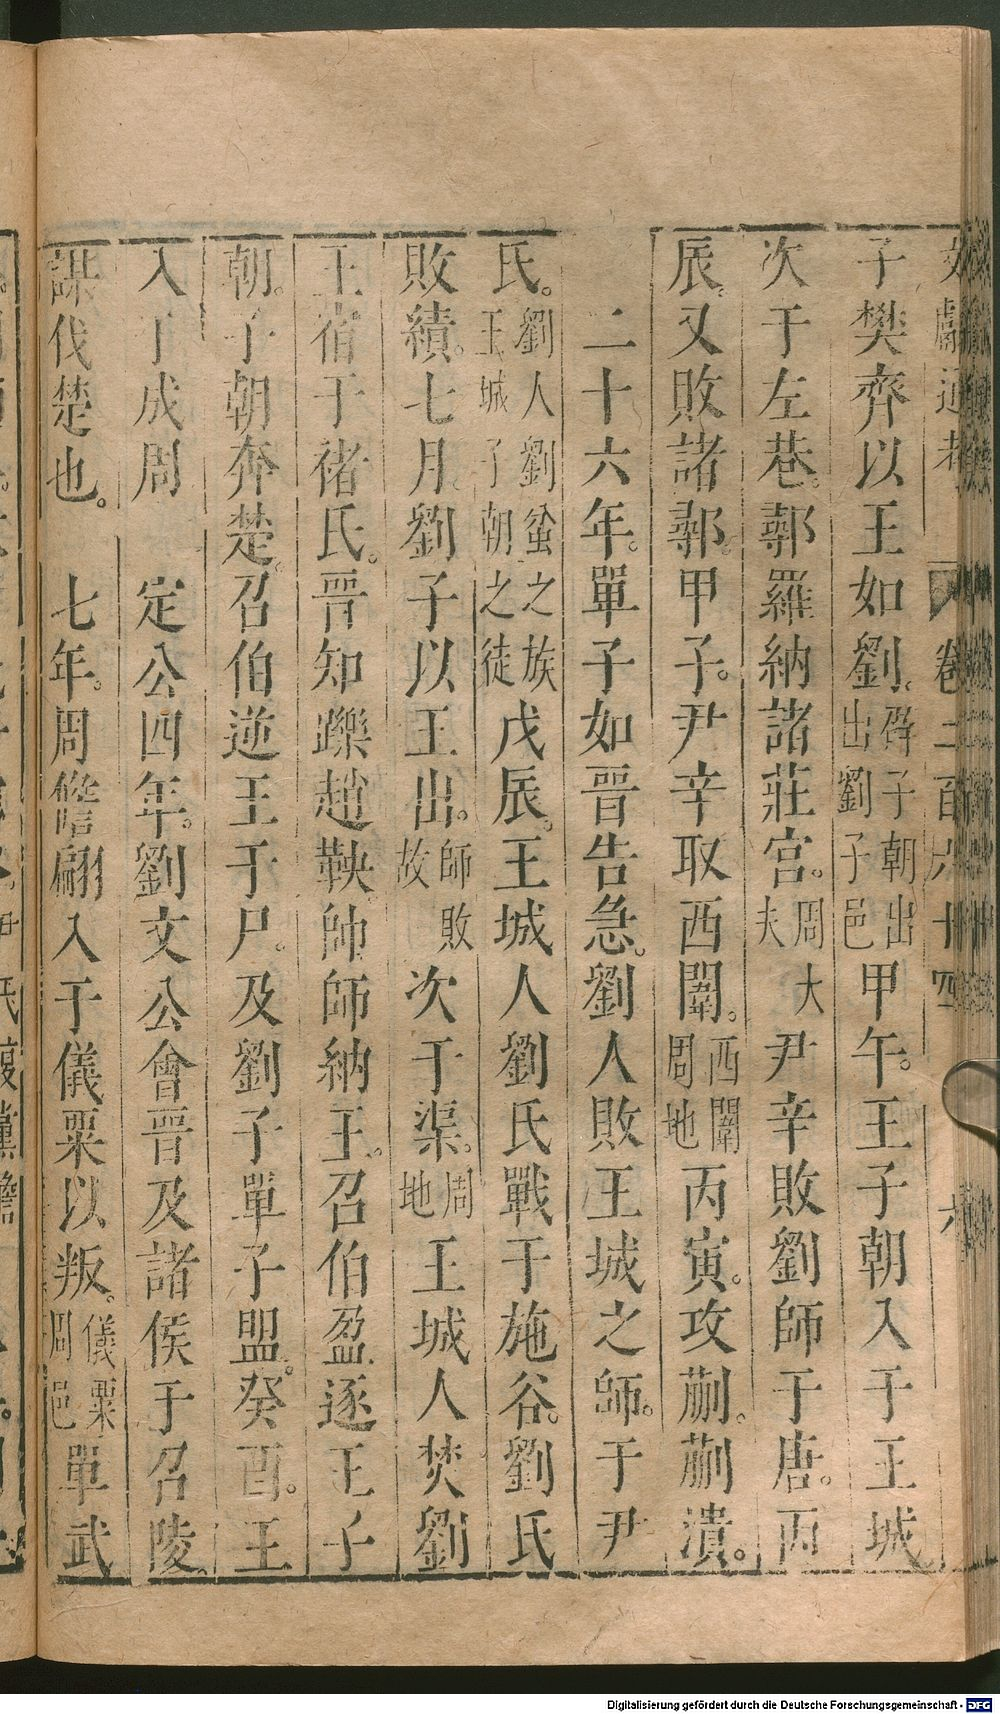 文獻通考　卷二百六十四　六
子樊齊以王如劉。辟子朝出出劉子邑甲午。王子朝入于王城
次于左巷。鄩羅納諸莊宮。周大夫尹辛敗劉師于唐。丙
辰。又敗諸鄩。甲子。尹辛取西闈。西闈周地丙寅。攻蒯。蒯潰。
二十六年。單子如晉告急。劉人敗王城之師。于尹
氏。劉人劉蚠之族王城子朝之徒戊辰。王城人劉氏戰于施谷。劉氏
敗績。七月。劉子以王出。師敗故次于渠。周地王城人焚劉
王宿于褚氏。晉知躒趙鞅帥師納王。召伯盈逐王子
朝。子朝奔楚。召伯逆王于尸。及劉子單子盟。癸酉。王
入于成周　定公四年。劉文公會晉及諸侯于召陵。
謀伐楚也。　七年。周儋翩入于儀栗以叛。儀栗周邑單武
Digitalisierung gefördert durch die Deutsche Forschungsgemeinschaft - DFG